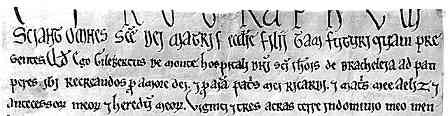 Sciant omnes Sce dei matris ecclie filii tam futuri quam pre
sentes qd Ego Gilebertus de monte hospitali dni sci Johis de Bracheleia ad pau
peres ibi recreandos p amore dei. et p aia patris mei Ricardi. et matris mee Aeliz. et
antecessor meor et heredum meor. Viginti et tres acras terre in dominio meo men